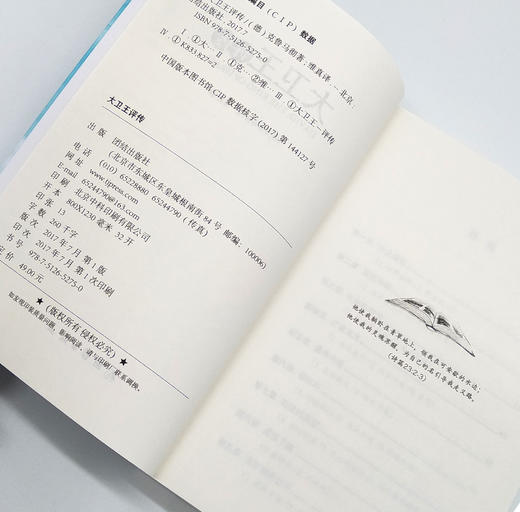 编目(CIP)数据
大卫王评传/(德)克鲁马彻著;维真译. —北京:
团结出版社, 2017.7
ISBN 978-7-5126-5275-0
Ⅰ. ①大… Ⅱ. ①克… ②维… Ⅲ. ①大卫王-评传
Ⅳ. ①K833.827=2
中国版本图书馆CIP数据核字(2017)第144127号
大卫王评传
出版 团结出版社
(北京市东城区东皇城根南街84号 邮编:100006)
电话 (010) 65228880 65244790(传真)
网址 www.tjpress.com
E-mail 65244790@163.com
印刷 北京中科印刷有限公司
开本 800X1230毫米 32开
印张 13
字数 260千字
版次 2017年7月第1版
印次 2017年7月第1次印刷
书号 978-7-5126-5275-0
定价 49.00元
★(版权所有 侵权必究)★
如发现印装质量问题,影响阅读,请与印刷厂联系调换。
他使我躺卧在青草地上,领我在可安歇的水边;
他使我的灵魂苏醒,为自己的名引导我走义路。
(诗篇23:2-3)